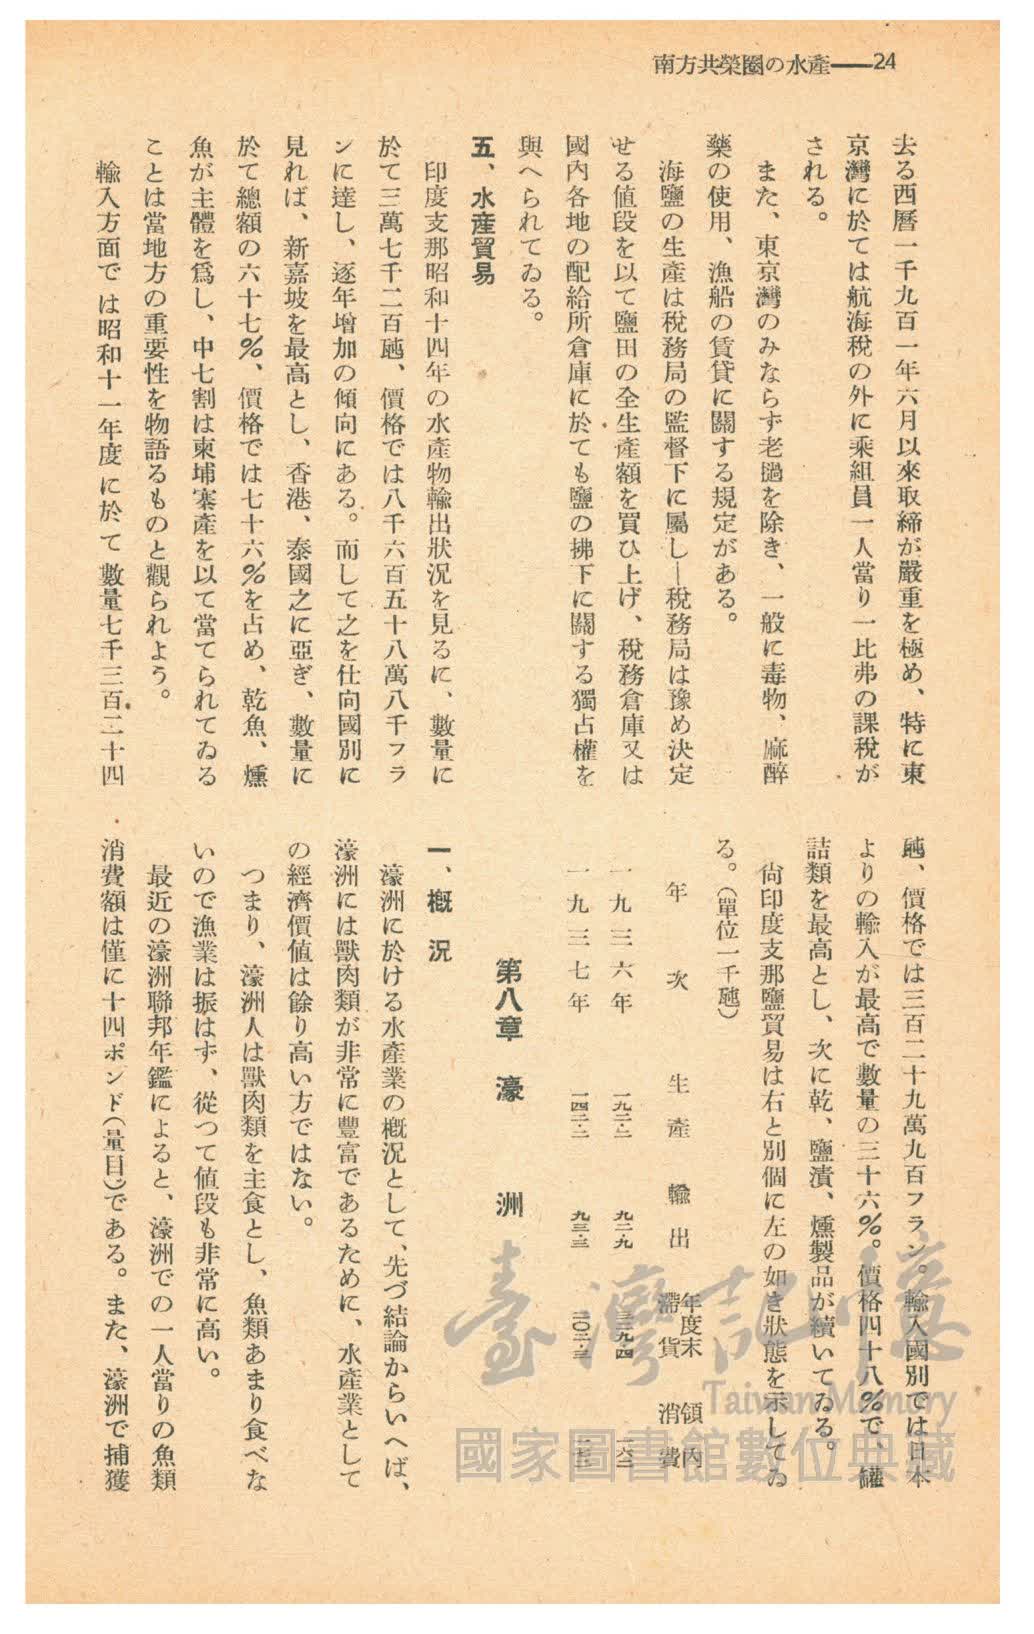 南方共榮圈の水產――24
去る西曆一千九百一年六月以來取締が嚴重を極め、特に東
京灣に於ては航海稅の外に乘組員一人當り一比弗の課稅が
される。
また、東京灣のみならず老撾を除き、一般に毒物、麻醉
藥の使用、漁船の賃貸に關する規定がある。
海鹽の生產は稅務局の監督下に屬し―稅務局は豫め決定
せる値段を以て鹽田の全生產額を買ひ上げ、稅務倉庫又は
國內各地の配給所倉庫に於ても鹽の拂下に關する獨占權を
與へられてゐる。
五、水產貿易
印度支那昭和十四年の水產物輸出狀況を見るに、數量に
於て三萬七千二百瓲、價格では八千六百五十八萬八千フラ
ンに達し、逐年增加の傾向にある。而して之を仕向國別に
見れば、新嘉坡を最高とし、香港、泰國之に亞ぎ、數量に
於て總額の六十七%、價格では七十六%を占め、乾魚、燻
魚が主體を爲し、中七割は柬埔寨產を以て當てられてゐる
ことは當地方の重要性を物語るものと觀られよう。
輸入方面では昭和十一年度に於て數量七千三百二十四
瓲、價格では三百二十九萬九百フラン。輸入國別では日本
よりの輸入が最高で數量の三十六%。價格四十八%で、罐
詰類を最高とし、次に乾、鹽漬、燻製品が續いてゐる。
尙印度支那鹽貿易は右と別個に左の如き狀態を示してゐ
る。(單位一千瓲)
年次 生產 輸出 年度末滯貨 領內消費
一九三六年 一九二・二 九二・九 三二九・四 一六二
一九三七年 一四二・二 九三・三 二〇二・三
第八章 濠洲
一、槪況
濠洲に於ける水產業の槪況として、先づ結論からいへば、
濠洲には獸肉類が非常に豐富であるために、水產業として
の經濟價値は餘り高い方ではない。
つまり、濠洲人は獸肉類を主食とし、魚類あまり食べな
いので漁業は振はず、從つて値段も非常に高い。
最近の濠洲聯邦年鑑によると、濠洲での一人當りの魚類
消費額は僅に十四ポンド(量目)である。また、濠洲で捕獲
臺灣記憶
Taiwan Memory
國家圖書館數位典藏